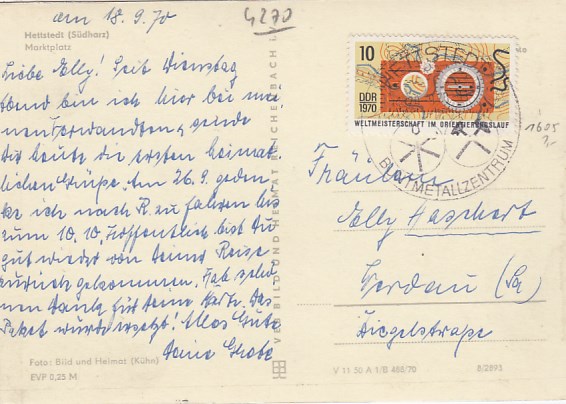 am 18.9.70
4270
Hettstedt (Südharz)
Marktplatz
Liebe Elly! Seit Dienstag
abend bin ich hier bei mei-
nen Verwandten, sende
Dir heute die ersten heimat-
lichen Grüße. Am 26.9. geden-
ke ich nach R. zu fahren bis
zum 10.10. Hoffentlich bist Du
gut wieder von Deiner Reise
zurück gekommen. Hab schö-
nen Dank für Deine Karte. Das
Paket wurde ersetzt! Alles Gute
Deine
Foto: Bild und Heimat (Kühn)
EVP 0,25 M
VEB BILD UND HEIMAT REICHENBACH i.
10
DDR
1970
WELTMEISTERSCHAFT IM ORIENTIERUNGSLAUF
HETTSTEDT
BUNTMETALLZENTRUM
1605
Fräulein
Elly Haschert
Werdau (Sa)
Ziegelstraße
V 11 50 A 1/B 488/70
8/2895